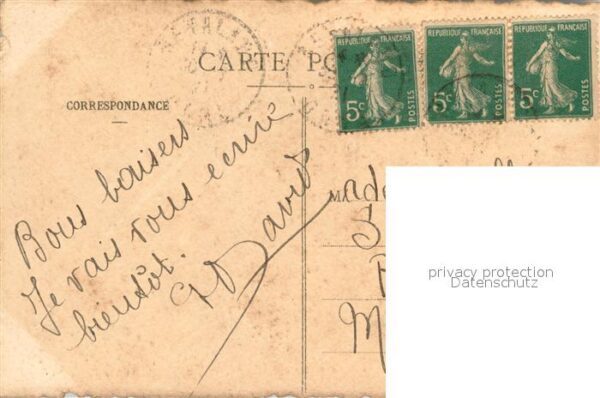 CARTE PO
REPUBLIQUE FRANÇAISE
5c
POSTES
REPUBLIQUE FRANÇAISE
5c
POSTES
REPUBLIQUE FRANÇAISE
5c
POSTES
CORRESPONDANCE
Bons baisers
Je vais vous écrire
bientôt.
David
Made
privacy protection
Datenschutz